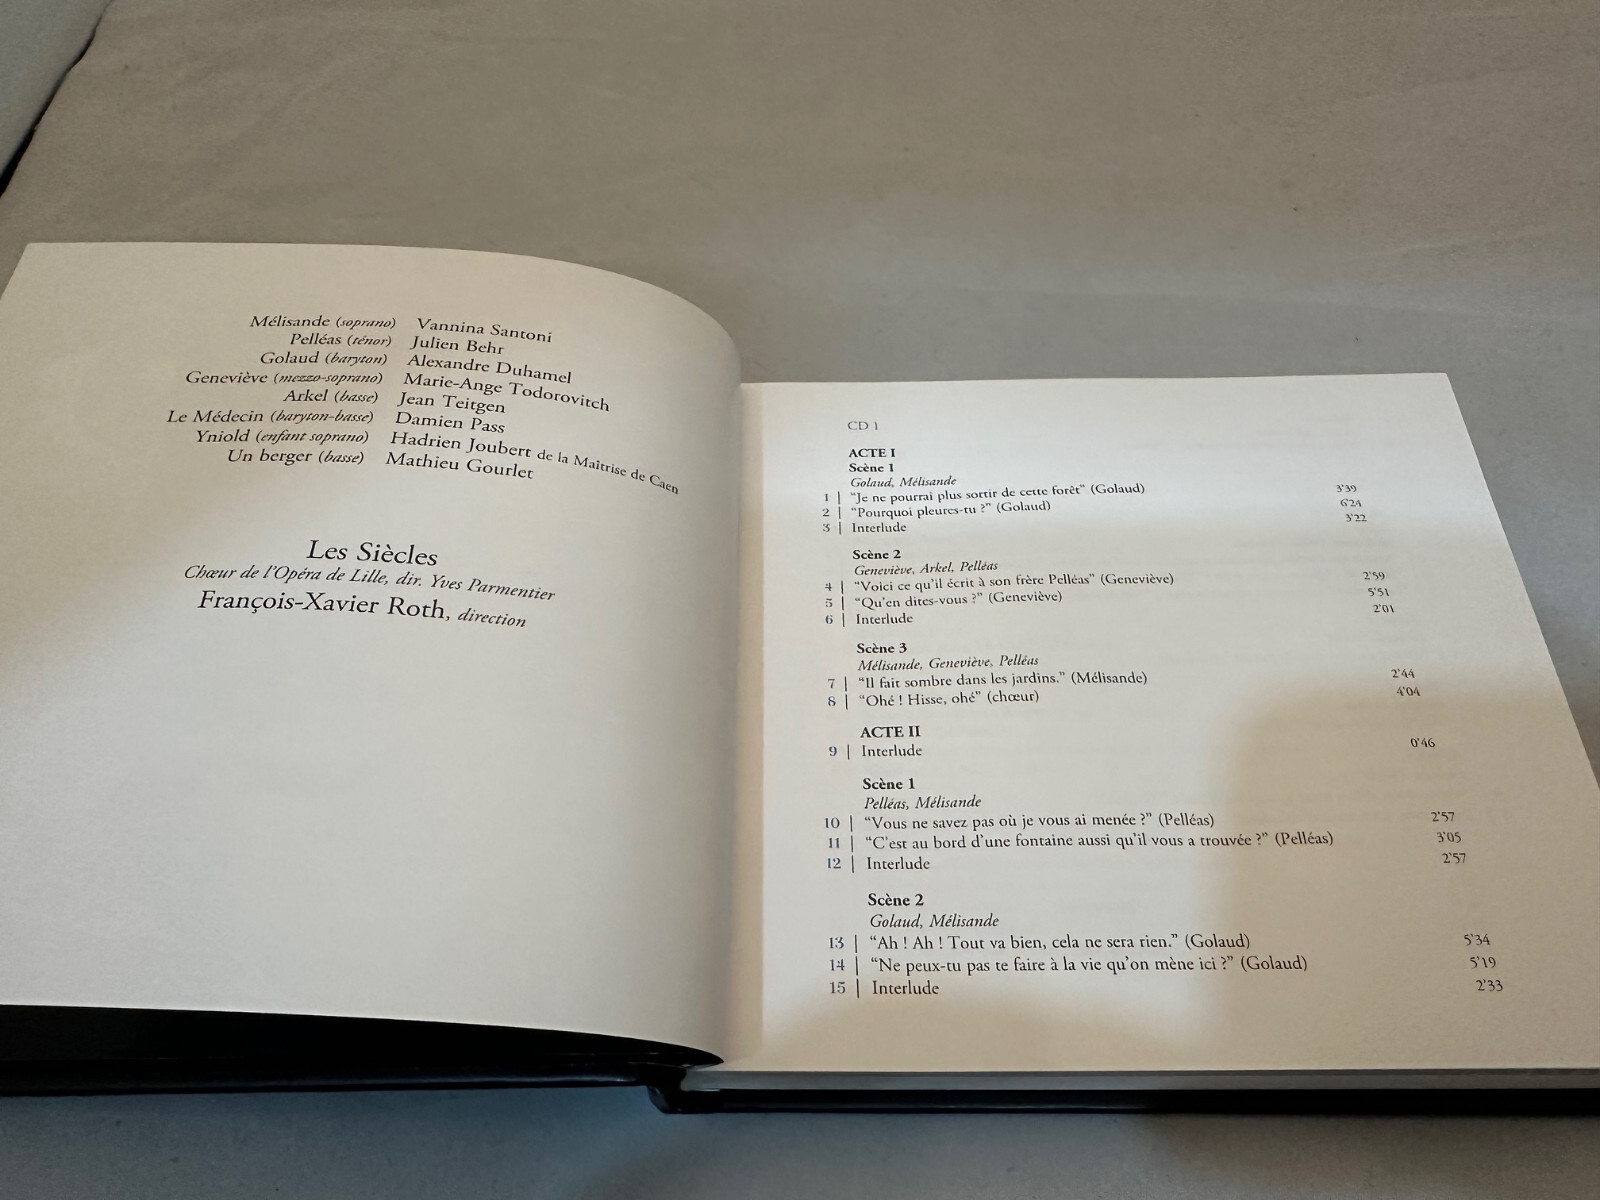 Mélisande (soprano) Vannina Santoni
Pelléas (ténor) Julien Behr
Golaud (baryton) Alexandre Duhamel
Geneviève (mezzo-soprano) Marie-Ange Todorovitch
Arkel (basse) Jean Teitgen
Le Médecin (baryton-basse) Damien Pass
Yniold (enfant soprano) Hadrien Joubert de la Maîtrise de Caen
Un berger (basse) Mathieu Gourlet
Les Siècles
Chœur de l'Opéra de Lille, dir. Yves Parmentier
François-Xavier Roth, direction
CD 1
ACTE I
Scène 1
Golaud, Mélisande
1 | “Je ne pourrai plus sortir de cette forêt” (Golaud) 3'39
2 | “Pourquoi pleures-tu ?” (Golaud) 6'24
3 | Interlude 3'22
Scène 2
Geneviève, Arkel, Pelléas
4 | “Voici ce qu'il écrit à son frère Pelléas” (Geneviève) 2'59
5 | “Qu'en dites-vous ?” (Geneviève) 5'51
6 | Interlude 2'01
Scène 3
Mélisande, Geneviève, Pelléas
7 | “Il fait sombre dans les jardins.” (Mélisande) 2'44
8 | “Ohé ! Hisse, ohé” (chœur) 4'04
ACTE II
9 | Interlude 0'46
Scène 1
Pelléas, Mélisande
10 | “Vous ne savez pas où je vous ai menée ?” (Pelléas) 2'57
11 | “C'est au bord d'une fontaine aussi qu'il vous a trouvée ?” (Pelléas) 3'05
12 | Interlude 2'57
Scène 2
Golaud, Mélisande
13 | “Ah ! Ah ! Tout va bien, cela ne sera rien.” (Golaud) 5'34
14 | “Ne peux-tu pas te faire à la vie qu'on mène ici ?” (Golaud) 5'19
15 | Interlude 2'33